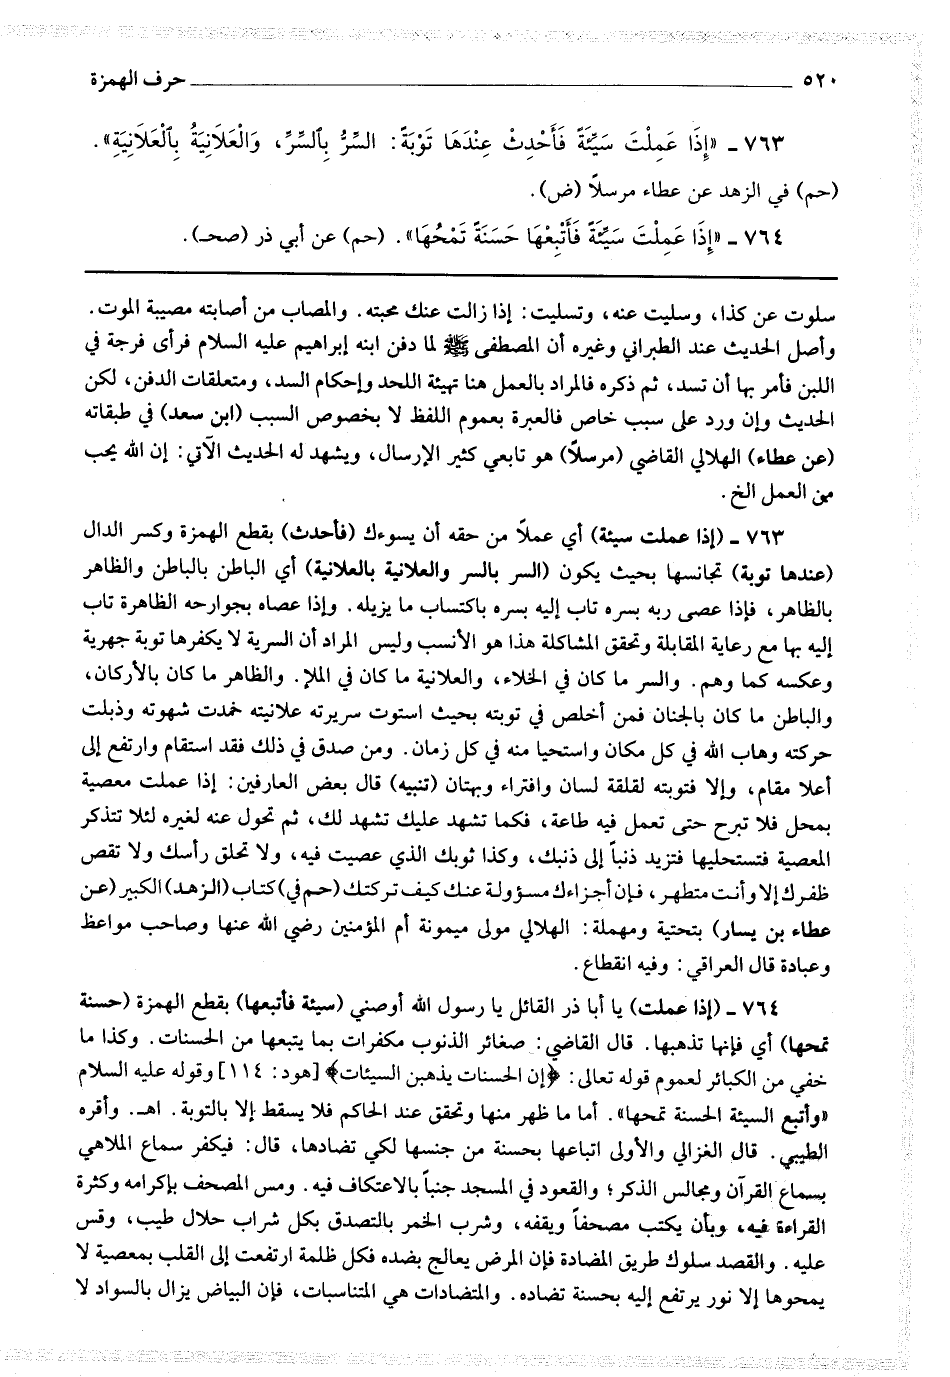 ٥٢٠ حرف الهمزة
٧٦٣ ـ «إِذَا عَمِلْتَ سَيِّئَةً فَأَحْدِثْ عِنْدَهَا تَوْبَةً: السِّرُّ بِٱلسِّرِّ، وَالْعَلَانِيَةُ بِٱلْعَلَانِيَةِ».
(حم) في الزهد عن عطاء مرسلاً (ض).
٧٦٤ ـ «إِذَا عَمِلْتَ سَيِّئَةً فَأَتْبِعْهَا حَسَنَةً تَمْحُهَا». (حم) عن أبي ذر (صحـ).
سلوت عن كذا، وسليت عنه، وتسليت: إذا زالت عنك محبته. والمصاب من أصابته مصيبة الموت.
وأصل الحديث عند الطبراني وغيره أن المصطفى ﷺ لما دفن ابنه إبراهيم عليه السلام فرأى فرجة في
اللبن فأمر بها أن تسد، ثم ذكره فالمراد بالعمل هنا تهيئة اللحد وإحكام السد، ومتعلقات الدفن، لكن
الحديث وإن ورد على سبب خاص فالعبرة بعموم اللفظ لا بخصوص السبب (ابن سعد) في طبقاته
(عن عطاء) الهلالي القاضي (مرسلاً) هو تابعي كثير الإرسال، ويشهد له الحديث الآتي: إن الله يحب
من العمل الخ.
٧٦٣ ـ (إذا عملت سيئة) أي عملاً من حقه أن يسوءك (فأحدث) بقطع الهمزة وكسر الدال
(عندها توبة) تجانسها بحيث يكون (السر بالسر والعلانية بالعلانية) أي الباطن بالباطن والظاهر
بالظاهر، فإذا عصى ربه بسره تاب إليه بسره باكتساب ما يزيله. وإذا عصاه بجوارحه الظاهرة تاب
إليه بها مع رعاية المقابلة وتحقق المشاكلة هذا هو الأنسب وليس المراد أن السرية لا يكفرها توبة جهرية
وعكسه كما وهم. والسر ما كان في الخلاء، والعلانية ما كان في الملإ. والظاهر ما كان بالأركان،
والباطن ما كان بالجنان فمن أخلص في توبته بحيث استوت سريرته علانيته خمدت شهوته وذبلت
حركته وهاب الله في كل مكان واستحيا منه في كل زمان. ومن صدق في ذلك فقد استقام وارتفع إلى
أعلا مقام، وإلا فتوبته لقلقة لسان وافتراء وبهتان (تنبيه) قال بعض العارفين: إذا عملت معصية
بمحل فلا تبرح حتى تعمل فيه طاعة، فكما تشهد عليك تشهد لك، ثم تحول عنه لغيره لئلا تتذكر
المعصية فتستحليها فتزيد ذنباً إلى ذنبك، وكذا ثوبك الذي عصيت فيه، ولا تحلق رأسك ولا تقص
ظفرك إلا وأنت متطهر، فإن أجزاءك مسؤولة عنك كيف تركتك (حم في) كتاب (الزهد) الكبير (عن
عطاء بن يسار) بتحتية ومهملة: الهلالي مولى ميمونة أم المؤمنين رضي الله عنها وصاحب مواعظ
وعبادة قال العراقي: وفيه انقطاع.
٧٦٤ ـ (إذا عملت) يا أبا ذر القائل يا رسول الله أوصني (سيئة فأتبعها) بقطع الهمزة (حسنة
تمحها) أي فإنها تذهبها. قال القاضي: صغائر الذنوب مكفرات بما يتبعها من الحسنات. وكذا ما
خفي من الكبائر لعموم قوله تعالى: ﴿إن الحسنات يذهبن السيئات﴾ [هود: ١١٤] وقوله عليه السلام
«وأتبع السيئة الحسنة تمحها». أما ما ظهر منها وتحقق عند الحاكم فلا يسقط إلا بالتوبة. اهـ. وأقره
الطيبي. قال الغزالي والأولى اتباعها بحسنة من جنسها لكي تضادها، قال: فيكفر سماع الملاهي
بسماع القرآن ومجالس الذكر؛ والقعود في المسجد جنباً بالاعتكاف فيه. ومس المصحف بإكرامه وكثرة
القراءة فيه، وبأن يكتب مصحفاً ويقفه، وشرب الخمر بالتصدق بكل شراب حلال طيب، وقس
عليه. والقصد سلوك طريق المضادة فإن المرض يعالج بضده فكل ظلمة ارتفعت إلى القلب بمعصية لا
يمحوها إلا نور يرتفع إليه بحسنة تضاده. والمتضادات هي المتناسبات، فإن البياض يزال بالسواد لا